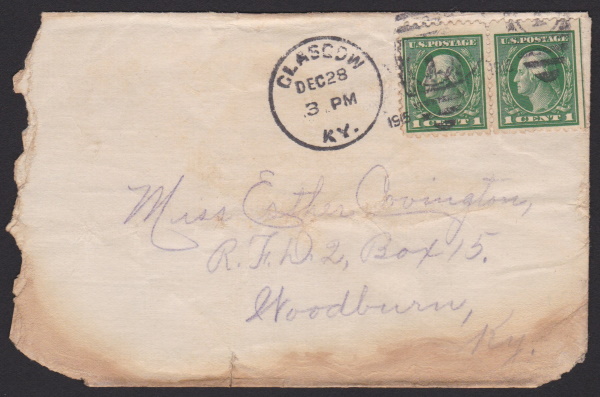 GLASGOW
DEC 28
3 PM
KY.
U.S. POSTAGE
1 CENT 1
U.S. POSTAGE
1 CENT 1
Miss Esther Covington,
R.F.D. 2, Box 15.
Woodburn,
Ky.